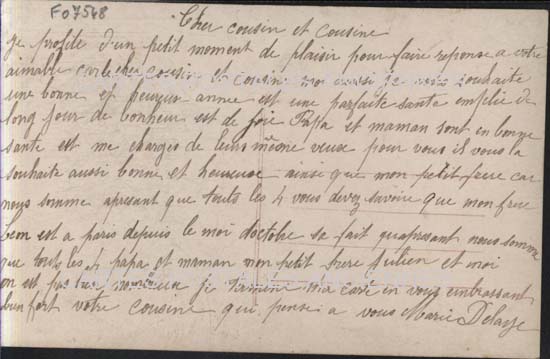 F07548
Cher cousin et Cousine
Je profite d'un petit moment de plaisir pour faire reponse a votre
aimable carte cher cousin et cousine moi aussi je vous souhaite
une bonne et heureux annee est une parfaite sante emplie de
long jour de bonheur est de joie Papa et maman sont en bonne
sante est me charges de leurs même veux pour vous il vous la
souhaite aussi bonne et heureuse ainsi que mon petit frere car
nous somme apresant que touts les 4 vous devez savoire que mon frere
Leon est a paris depuis le moi doctobre sa fait quapresant nous somme
que touts les 4 papa et maman mon petit frere Julien et moi
on est pas je termine ma carte en vous embrassant
bien fort votre cousine qui pense a vous Marie Delage